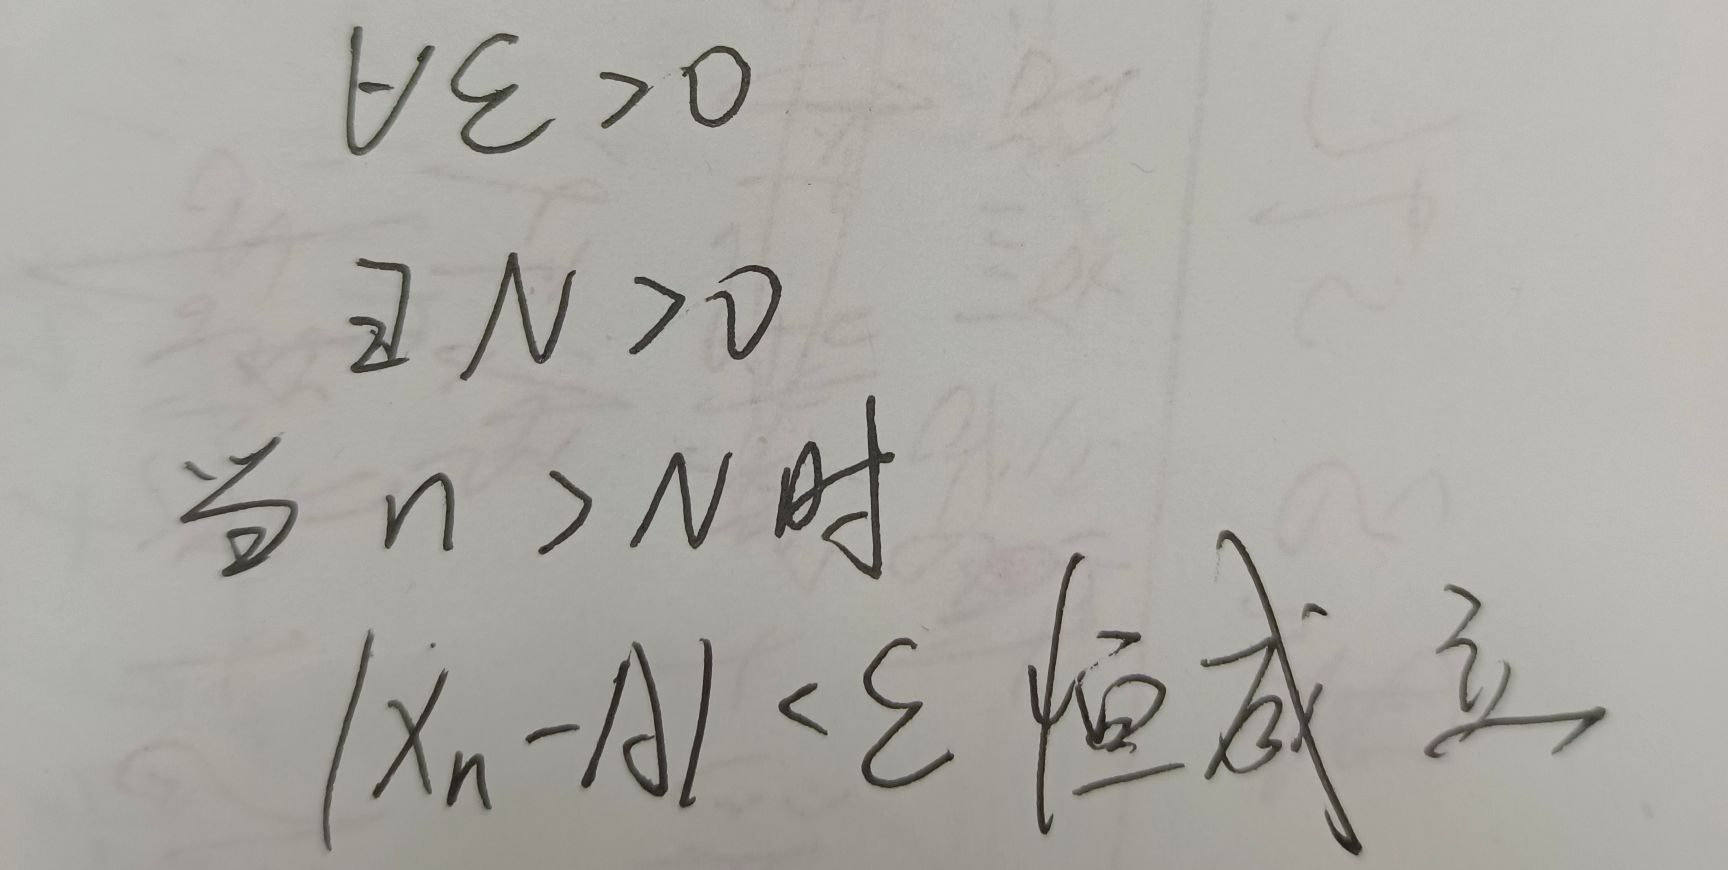 ∀ε>0
∃N>0
当n>N时
|xₙ-A|<ε恒成立